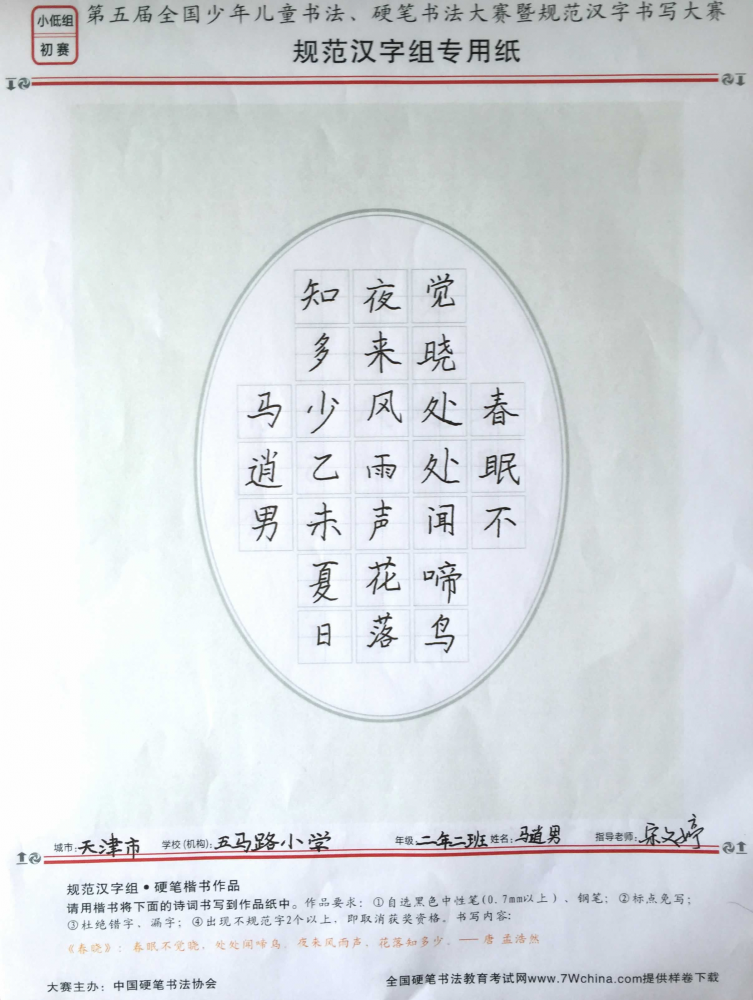 小低组
初赛
第五届全国少年儿童书法、硬笔书法大赛暨规范汉字书写大赛
规范汉字组专用纸
春眠不
觉晓处处闻啼鸟
夜来风雨声花落
知多少乙未夏日
马逍男
城市:天津市 学校(机构):五马路小学 年级:二年二班 姓名:马逍男 指导老师:宋文婷
规范汉字组•硬笔楷书作品
请用楷书将下面的诗词书写到作品纸中。作品要求:①自选黑色中性笔(0.7mm以上)、钢笔;②标点免写;
③杜绝错字、漏字;④出现不规范字2个以上,即取消获奖资格。书写内容:
《春晓》:春眠不觉晓,处处闻啼鸟。夜来风雨声,花落知多少。——唐 孟浩然
大赛主办:中国硬笔书法协会
全国硬笔书法教育考试网www.7Wchina.com提供样卷下载